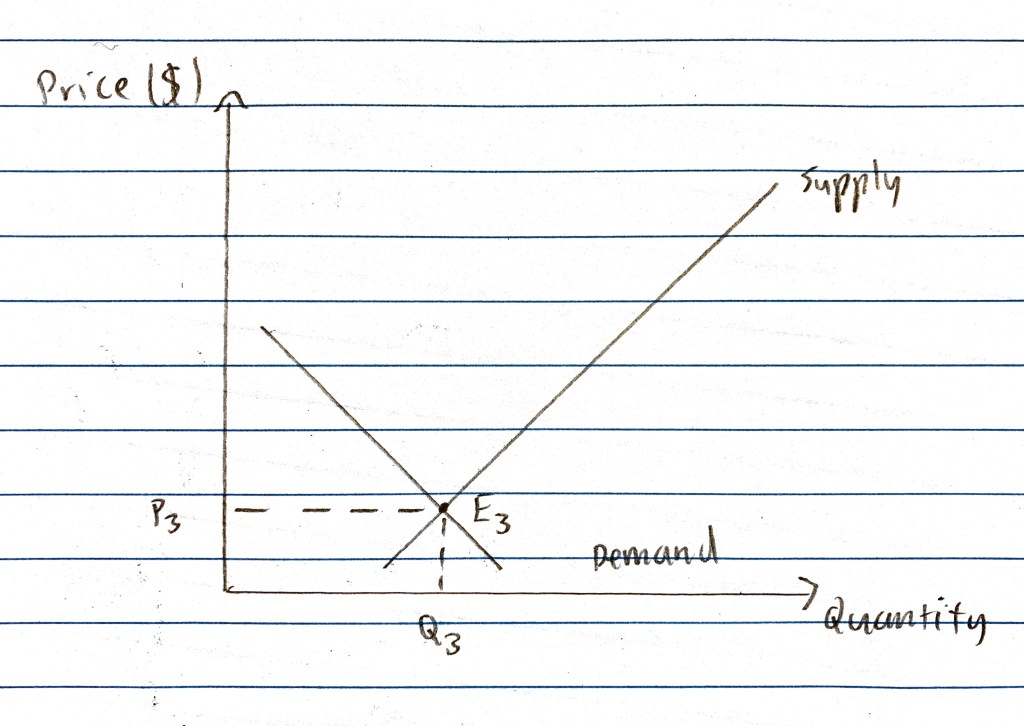 Price ($)
Supply
P₃
E₃
Demand
Quantity
Q₃